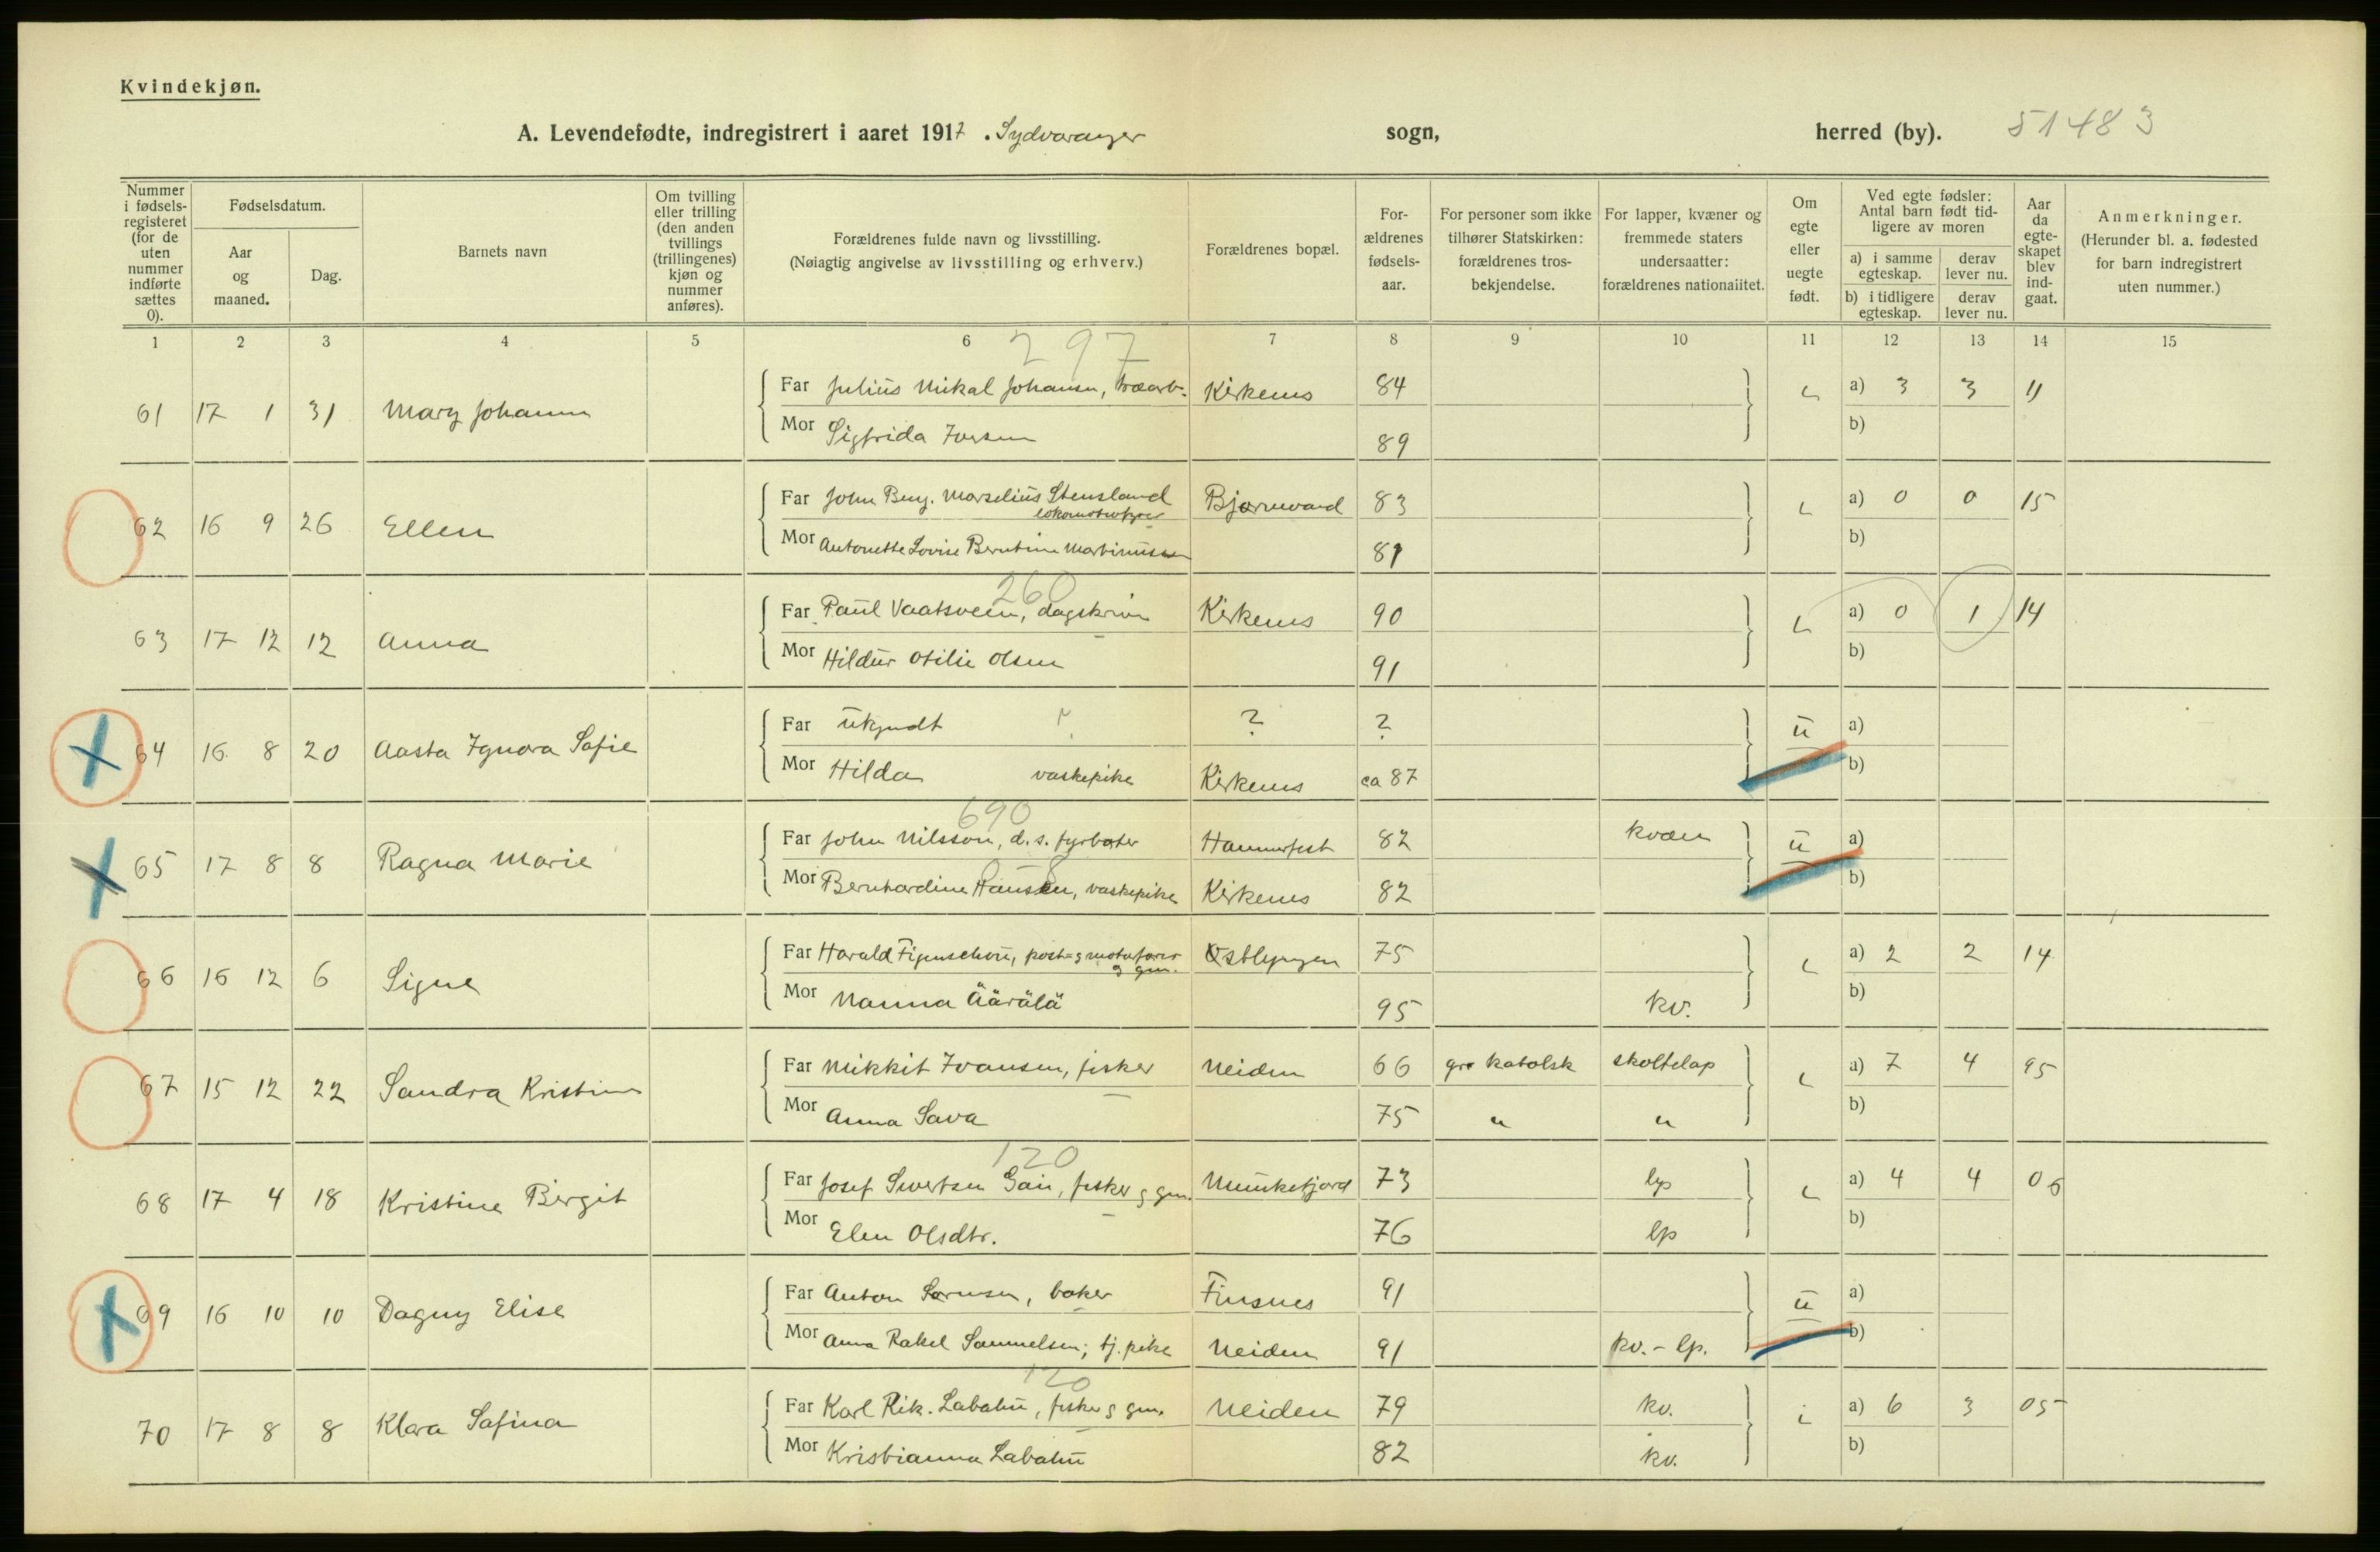 Kvindekjøn.
A. Levendefødte, indregistrert i aaret 1917. Sydvaranger sogn, herred (by). 51483
Nummer i fødsels-registeret (for de uten nummer indførte sættes 0).
Fødselsdatum.
Aar og maaned.
Dag.
Barnets navn
Om tvilling eller trilling (den anden tvillings (trillingenes) kjøn og nummer anføres).
Forældrenes fulde navn og livsstilling.
(Nøiagtig angivelse av livsstilling og erhverv.)
Forældrenes bopæl.
For-ældrenes fødsels-aar.
For personer som ikke tilhører Statskirken: forældrenes tros-bekjendelse.
For lapper, kvæner og fremmede staters undersaatter: forældrenes nationalitet.
Om egte eller uegte født.
Ved egte fødsler: Antal barn født tid-ligere av moren
a) i samme egteskap.
derav lever nu.
b) i tidligere egteskap.
derav lever nu.
Aar da egte-skapet blev ind-gaat.
Anmerkninger.
(Herunder bl. a. fødested for barn indregistrert uten nummer.)
1 2 3 4 5 6 7 8 9 10 11 12 13 14 15
297
61 17 1 31 Mary Johanne Far Julius Mikal Johansen, træarb. Kirkenes 84 a) 3 3 11
Mor Sigfrida Iversen 89 b)
62 16 9 26 Ellen Far John Berg. Marselius Stensland Bjørnevand 83 a) 0 0 15
lokomotivfyrer
Mor Antonette Lovise Berntine Martinussen 81 b)
260
63 17 12 12 Anna Far Paul Vaatsveen, dagskriv Kirkenes 90 a) 0 1 14
Mor Hildur Otilie Olsen 91 b)
64 16 8 20 Aasta Ignora Sofie Far ukjendt ? ? ? u a)
Mor Hilda vaskepike Kirkenes ca 87 b)
690
65 17 8 8 Ragna Marie Far John Nilsson, d. s. fyrbøter Hammerfest 82 kvæn u a)
Mor Bernhardine Hansen, vaskepike Kirkenes 82 b)
66 16 12 6 Signe Far Harald Figenschou, post- g motorfører Østlyngen 75 a) 2 2 14
g gm.
Mor Nanna Äärälä 95 kv. b)
67 15 12 22 Sandra Kristine Far Mikkit Ivansen, fisker Neiden 66 gr. katolsk skoltelap a) 7 4 95
Mor Anna Sava 75 " " b)
120
68 17 4 18 Kristine Bergit Far Josef Sivertsen Gain, fisker g gm. Munkefjord 73 lp a) 4 4 06
Mor Elen Olsdtr. 76 lp b)
69 16 10 10 Dagny Elise Far Anton Sørensen, baker Finsnes 91 u a)
Mor Anna Rakel Samuelsen; tj. pike Neiden 91 kv. - lp. b)
120
70 17 8 8 Klara Safina Far Karl Rik. Labahu, fisker g gm. Neiden 79 kv. a) 6 3 05
Mor Kristianna Labahu 82 kv. b)